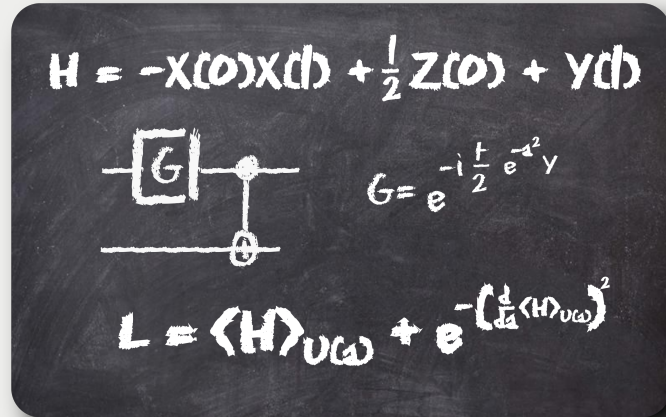 H = -X(0)X(1) + 1/2 Z(0) + Y(1)
G
G = e^{-i \frac{t}{2} e^{-a^2} Y}
L = ⟨H⟩_{U(a)} + e^{-(\frac{d}{da}⟨H⟩_{U(a)})^2}